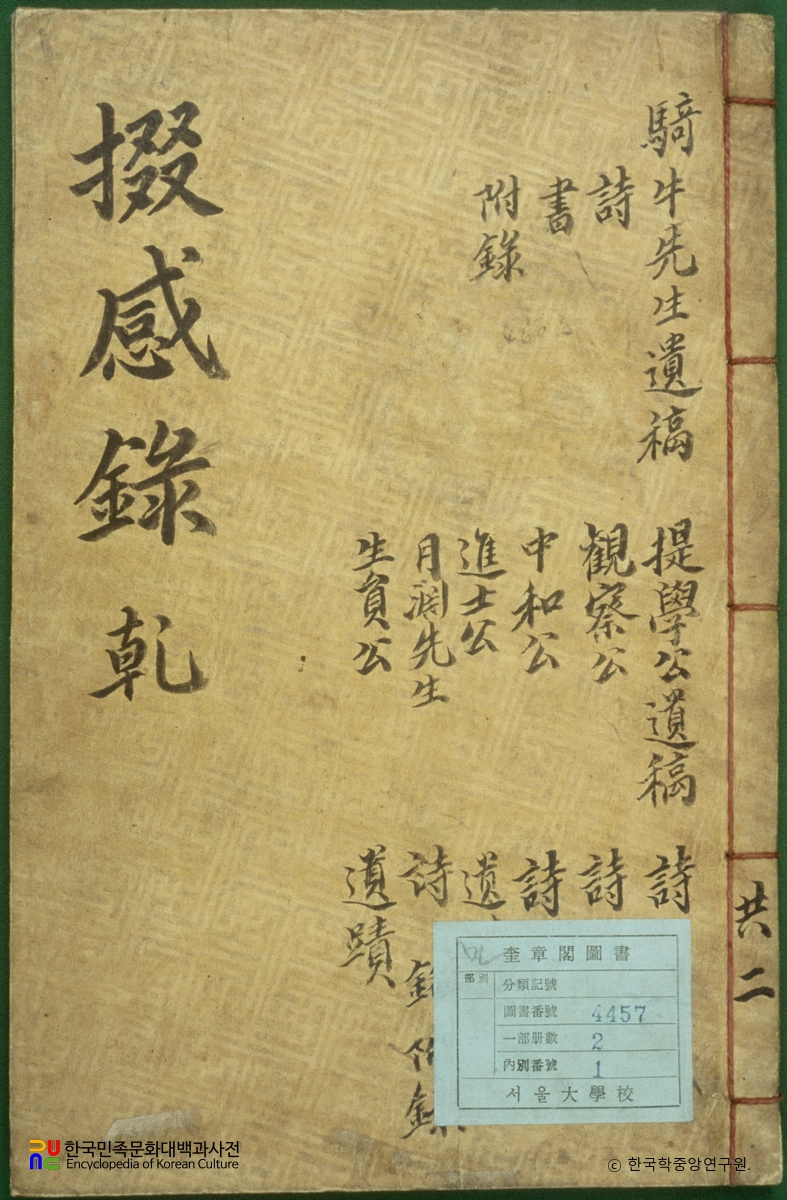 騎牛先生遺稿
詩
書
附錄
提學公遺稿 詩
觀察公 詩
中和公 詩
進士公 遺
月淵先生 詩 附錄
生員公 遺蹟
掇感錄 乾
共二
奎章閣圖書
部別
分類記號
圖書番號 4457
一部册數 2
內別番號 1
서울大學校
한국민족문화대백과사전
Encyclopedia of Korean Culture
© 한국학중앙연구원.